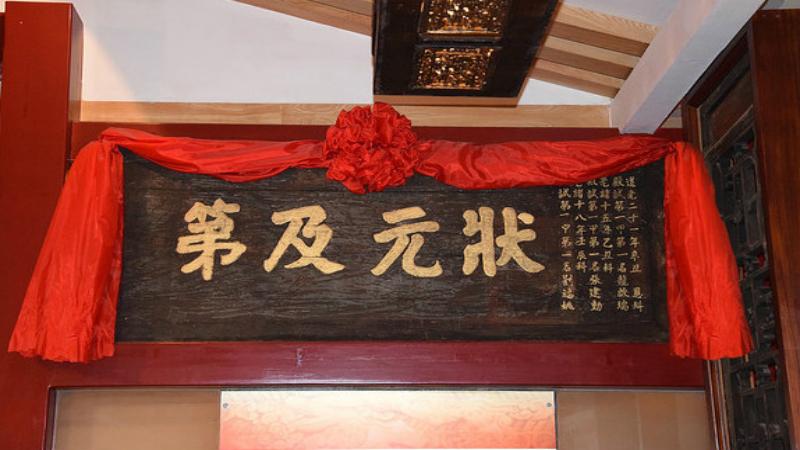 道光二十一年辛丑 恩科
殿試第一甲第一名龍啟瑞
光緒十五年己丑科
殿試第一甲第一名張建勳
光緒十八年壬辰科
殿試第一甲第一名劉福姚
狀元及第